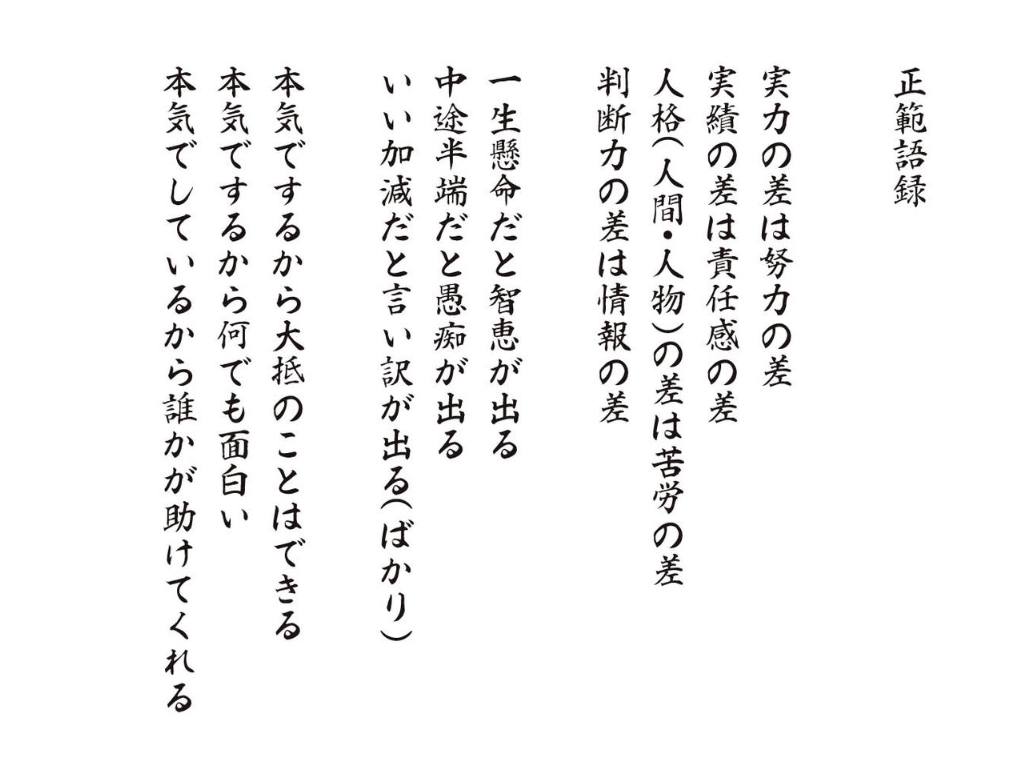 正範語録
実力の差は努力の差
実績の差は責任感の差
人格(人間・人物)の差は苦労の差
判断力の差は情報の差
一生懸命だと智恵が出る
中途半端だと愚痴が出る
いい加減だと言い訳が出る(ばかり)
本気でするから大抵のことはできる
本気でするから何でも面白い
本気でしているから誰かが助けてくれる